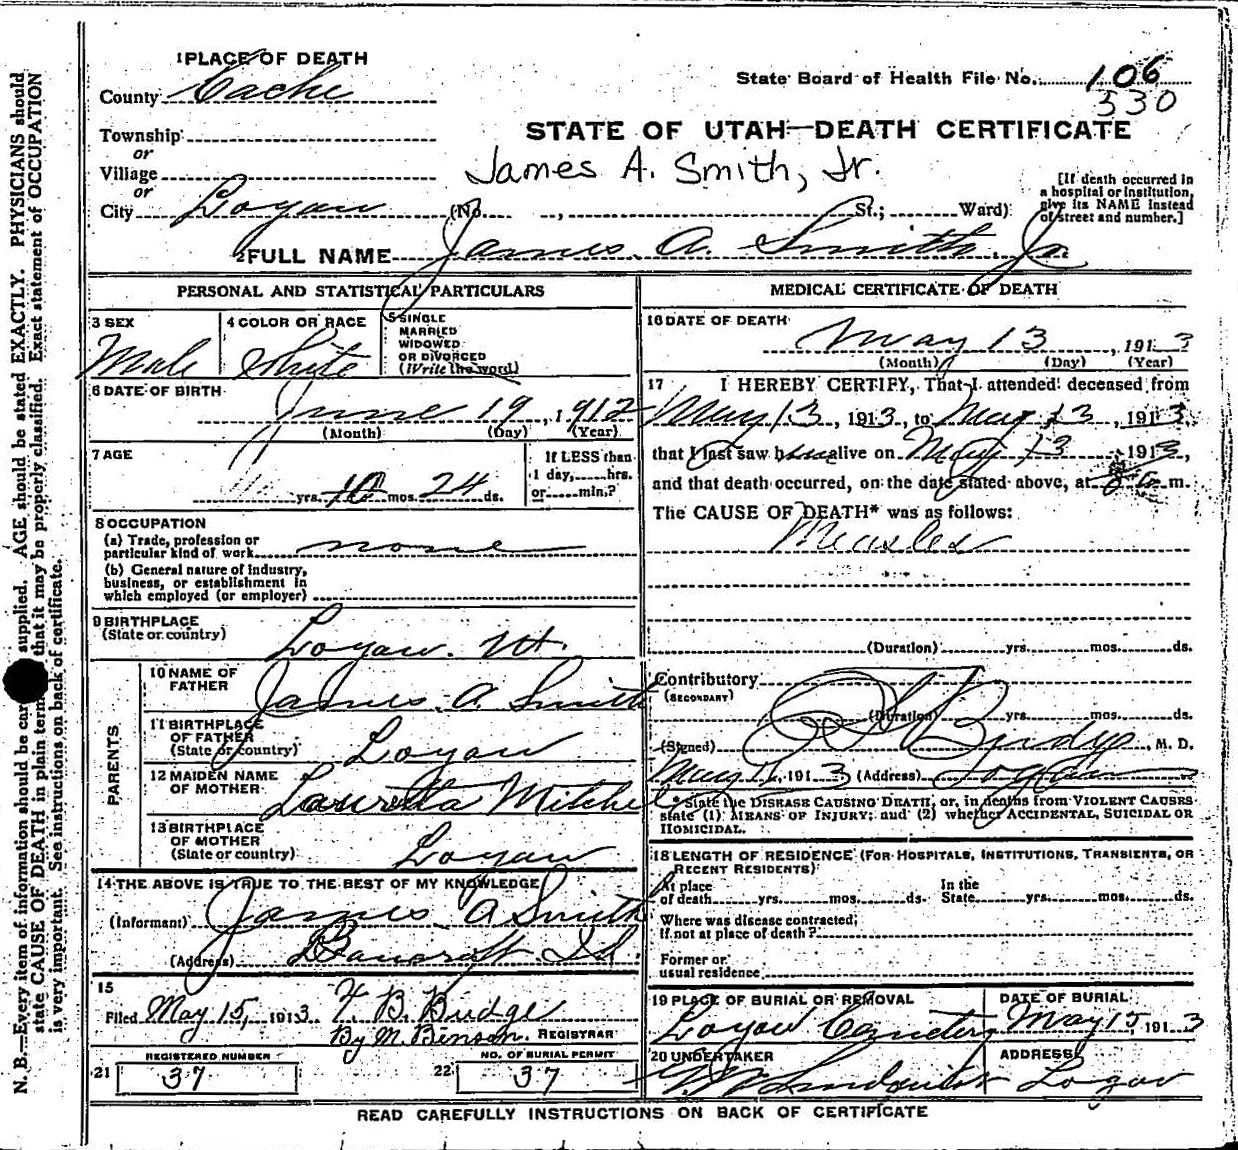 1 PLACE OF DEATH
County Cache
State Board of Health File No. 106
330
Township
or
Village
or
City Logan (No. , St.; Ward)
STATE OF UTAH—DEATH CERTIFICATE
James A. Smith, Jr.
[If death occurred in
a hospital or institution,
give its NAME instead
of street and number.]
2 FULL NAME James. A. Smith Jr.
PERSONAL AND STATISTICAL PARTICULARS
3 SEX
Male
4 COLOR OR RACE
White
5 SINGLE
MARRIED
WIDOWED
OR DIVORCED
(Write the word)
6 DATE OF BIRTH
June 19, 1912
(Month) (Day) (Year)
7 AGE
yrs. 10 mos. 24 ds.
If LESS than
1 day, hrs.
or min.?
8 OCCUPATION
(a) Trade, profession or
particular kind of work none
(b) General nature of industry,
business, or establishment in
which employed (or employer)
9 BIRTHPLACE
(State or country) Logan. Ut.
PARENTS
10 NAME OF
FATHER James. A. Smith
11 BIRTHPLACE
OF FATHER
(State or country) Logan
12 MAIDEN NAME
OF MOTHER Lauretta Mitchel
13 BIRTHPLACE
OF MOTHER
(State or country) Logan
14 THE ABOVE IS TRUE TO THE BEST OF MY KNOWLEDGE
(Informant) James. A Smith
(Address) Bancroft Id.
15
Filed May 15, 1913. F. B. Budge
By M. Benson. REGISTRAR
REGISTERED NUMBER
21 37
NO. OF BURIAL PERMIT
22 37
MEDICAL CERTIFICATE OF DEATH
16 DATE OF DEATH
May 13, 1913
(Month) (Day) (Year)
17 I HEREBY CERTIFY, That I attended deceased from
May 13, 1913, to May 13, 1913,
that I last saw him alive on May 13, 1913,
and that death occurred, on the date stated above, at m.
The CAUSE OF DEATH* was as follows:
Measles
(Duration) yrs. mos. ds.
Contributory
(SECONDARY)
(Duration) yrs. mos. ds.
(Signed) Budge, M. D.
May , 1913 (Address) Logan
* State the DISEASE CAUSING DEATH, or, in deaths from VIOLENT CAUSES
state (1) MEANS OF INJURY; and (2) whether ACCIDENTAL, SUICIDAL OR
HOMICIDAL.
18 LENGTH OF RESIDENCE (FOR HOSPITALS, INSTITUTIONS, TRANSIENTS, OR
RECENT RESIDENTS)
At place
of death yrs. mos. ds.
In the
State yrs. mos. ds.
Where was disease contracted,
If not at place of death?
Former or
usual residence
19 PLACE OF BURIAL OR REMOVAL
Logan Cemetery
DATE OF BURIAL
May 15 1913
20 UNDERTAKER
ADDRESS
Logan
READ CAREFULLY INSTRUCTIONS ON BACK OF CERTIFICATE
N. B.—Every item of information should be supplied. AGE should be stated EXACTLY. PHYSICIANS should
state CAUSE OF DEATH in plain that it may be properly classified. Exact statement of OCCUPATION
is very important. See instructions on back of certificate.